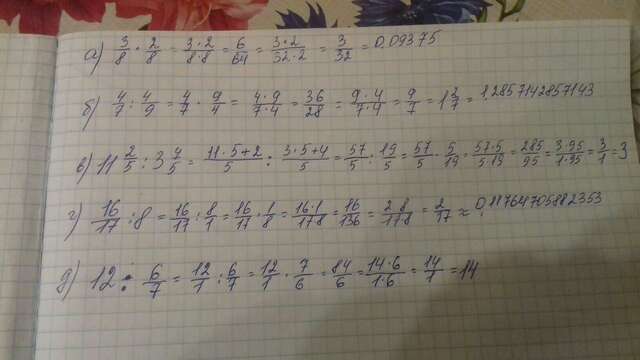 а) 3/8 · 2/8 = 3·2/8·8 = 6/64 = 3·2/32·2 = 3/32 = 0,09375
б) 4/7 : 4/9 = 4/7 · 9/4 = 4·9/7·4 = 36/28 = 9·4/7·4 = 9/7 = 1 2/7 = 1,2857142857143
в) 11 2/5 : 3 4/5 = 11·5+2/5 : 3·5+4/5 = 57/5 : 19/5 = 57/5 · 5/19 = 57·5/5·19 = 285/95 = 3·95/1·95 = 3/1 = 3
г) 16/17 : 8 = 16/17 : 8/1 = 16/17 · 1/8 = 16·1/17·8 = 16/136 = 2·8/17·8 = 2/17 ≈ 0,11764705882353
д) 12 : 6/7 = 12/1 : 6/7 = 12/1 · 7/6 = 84/6 = 14·6/1·6 = 14/1 = 14